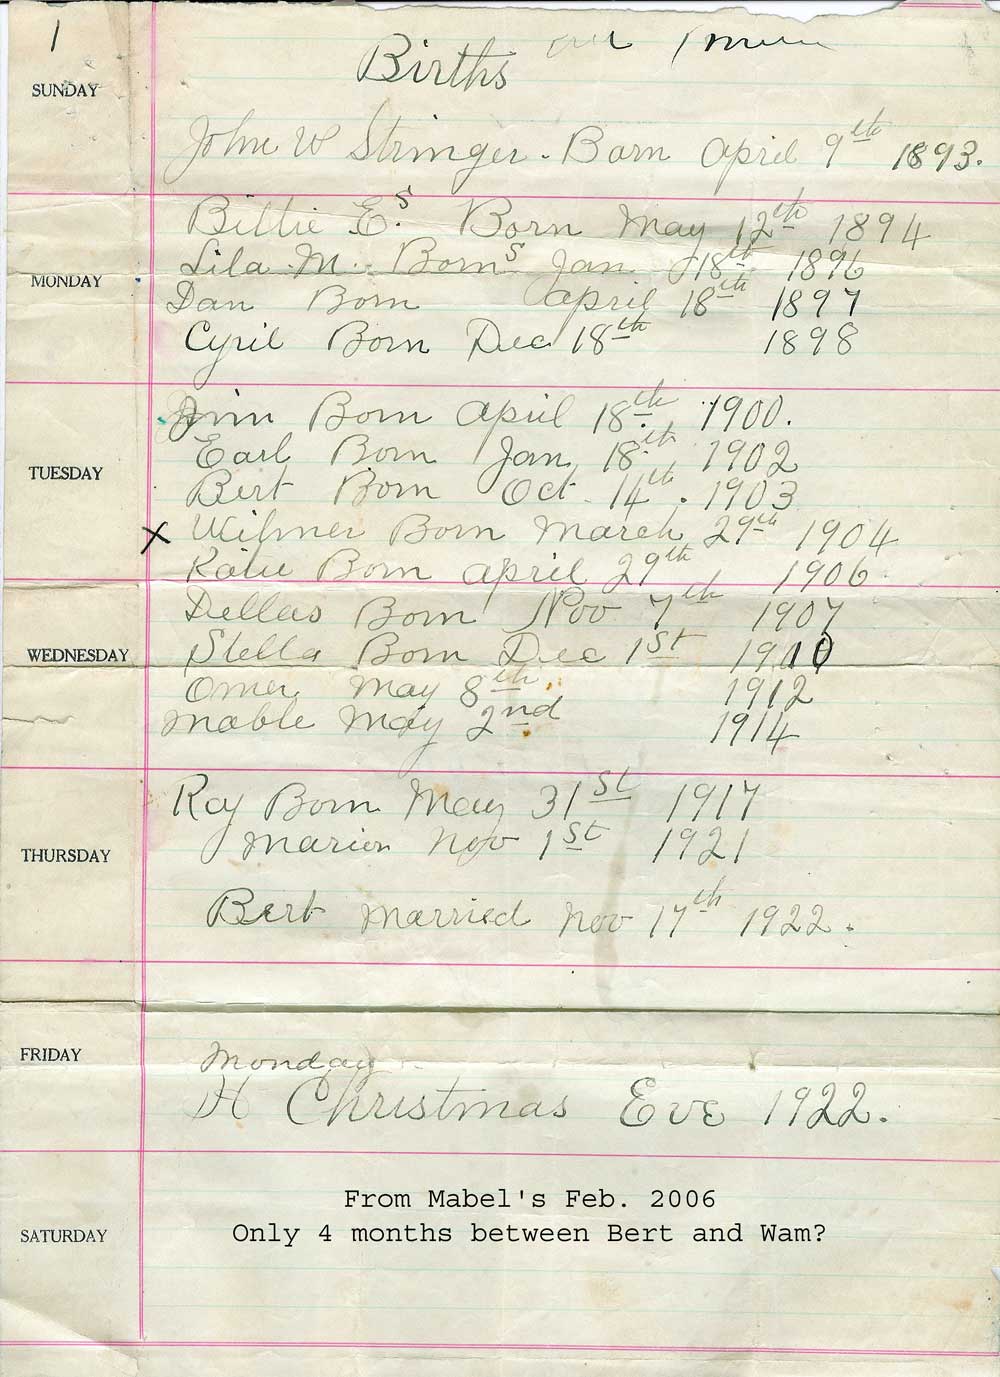 1
Births
SUNDAY
John W Stringer. Born April 9th 1893.
Billie E.S Born May 12th 1894
Lila M. Born S Jan 18th 1896
MONDAY
Dan Born April 18th 1897
Cyril Born Dec 18th 1898
Jim Born April 18th. 1900.
Earl Born Jan 18th 1902
TUESDAY
Bert Born Oct. 14th. 1903
X Wilmer Born March 29th 1904
Katie Born April 29th 1906.
Dellas Born Nov 7th 1907
WEDNESDAY
Stella Born Dec 1st 1910
Omer May 8th 1912
Mable May 2nd 1914
Roy Born May 31st 1917
THURSDAY
Marion Nov 1st 1921
Bert Married Nov 17th 1922.
FRIDAY
Monday
H Christmas Eve 1922.
From Mabel's Feb. 2006
SATURDAY
Only 4 months between Bert and Wam?